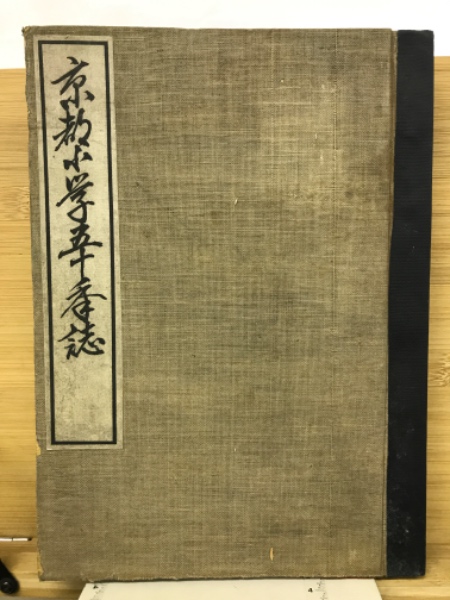 京都小学五十年誌